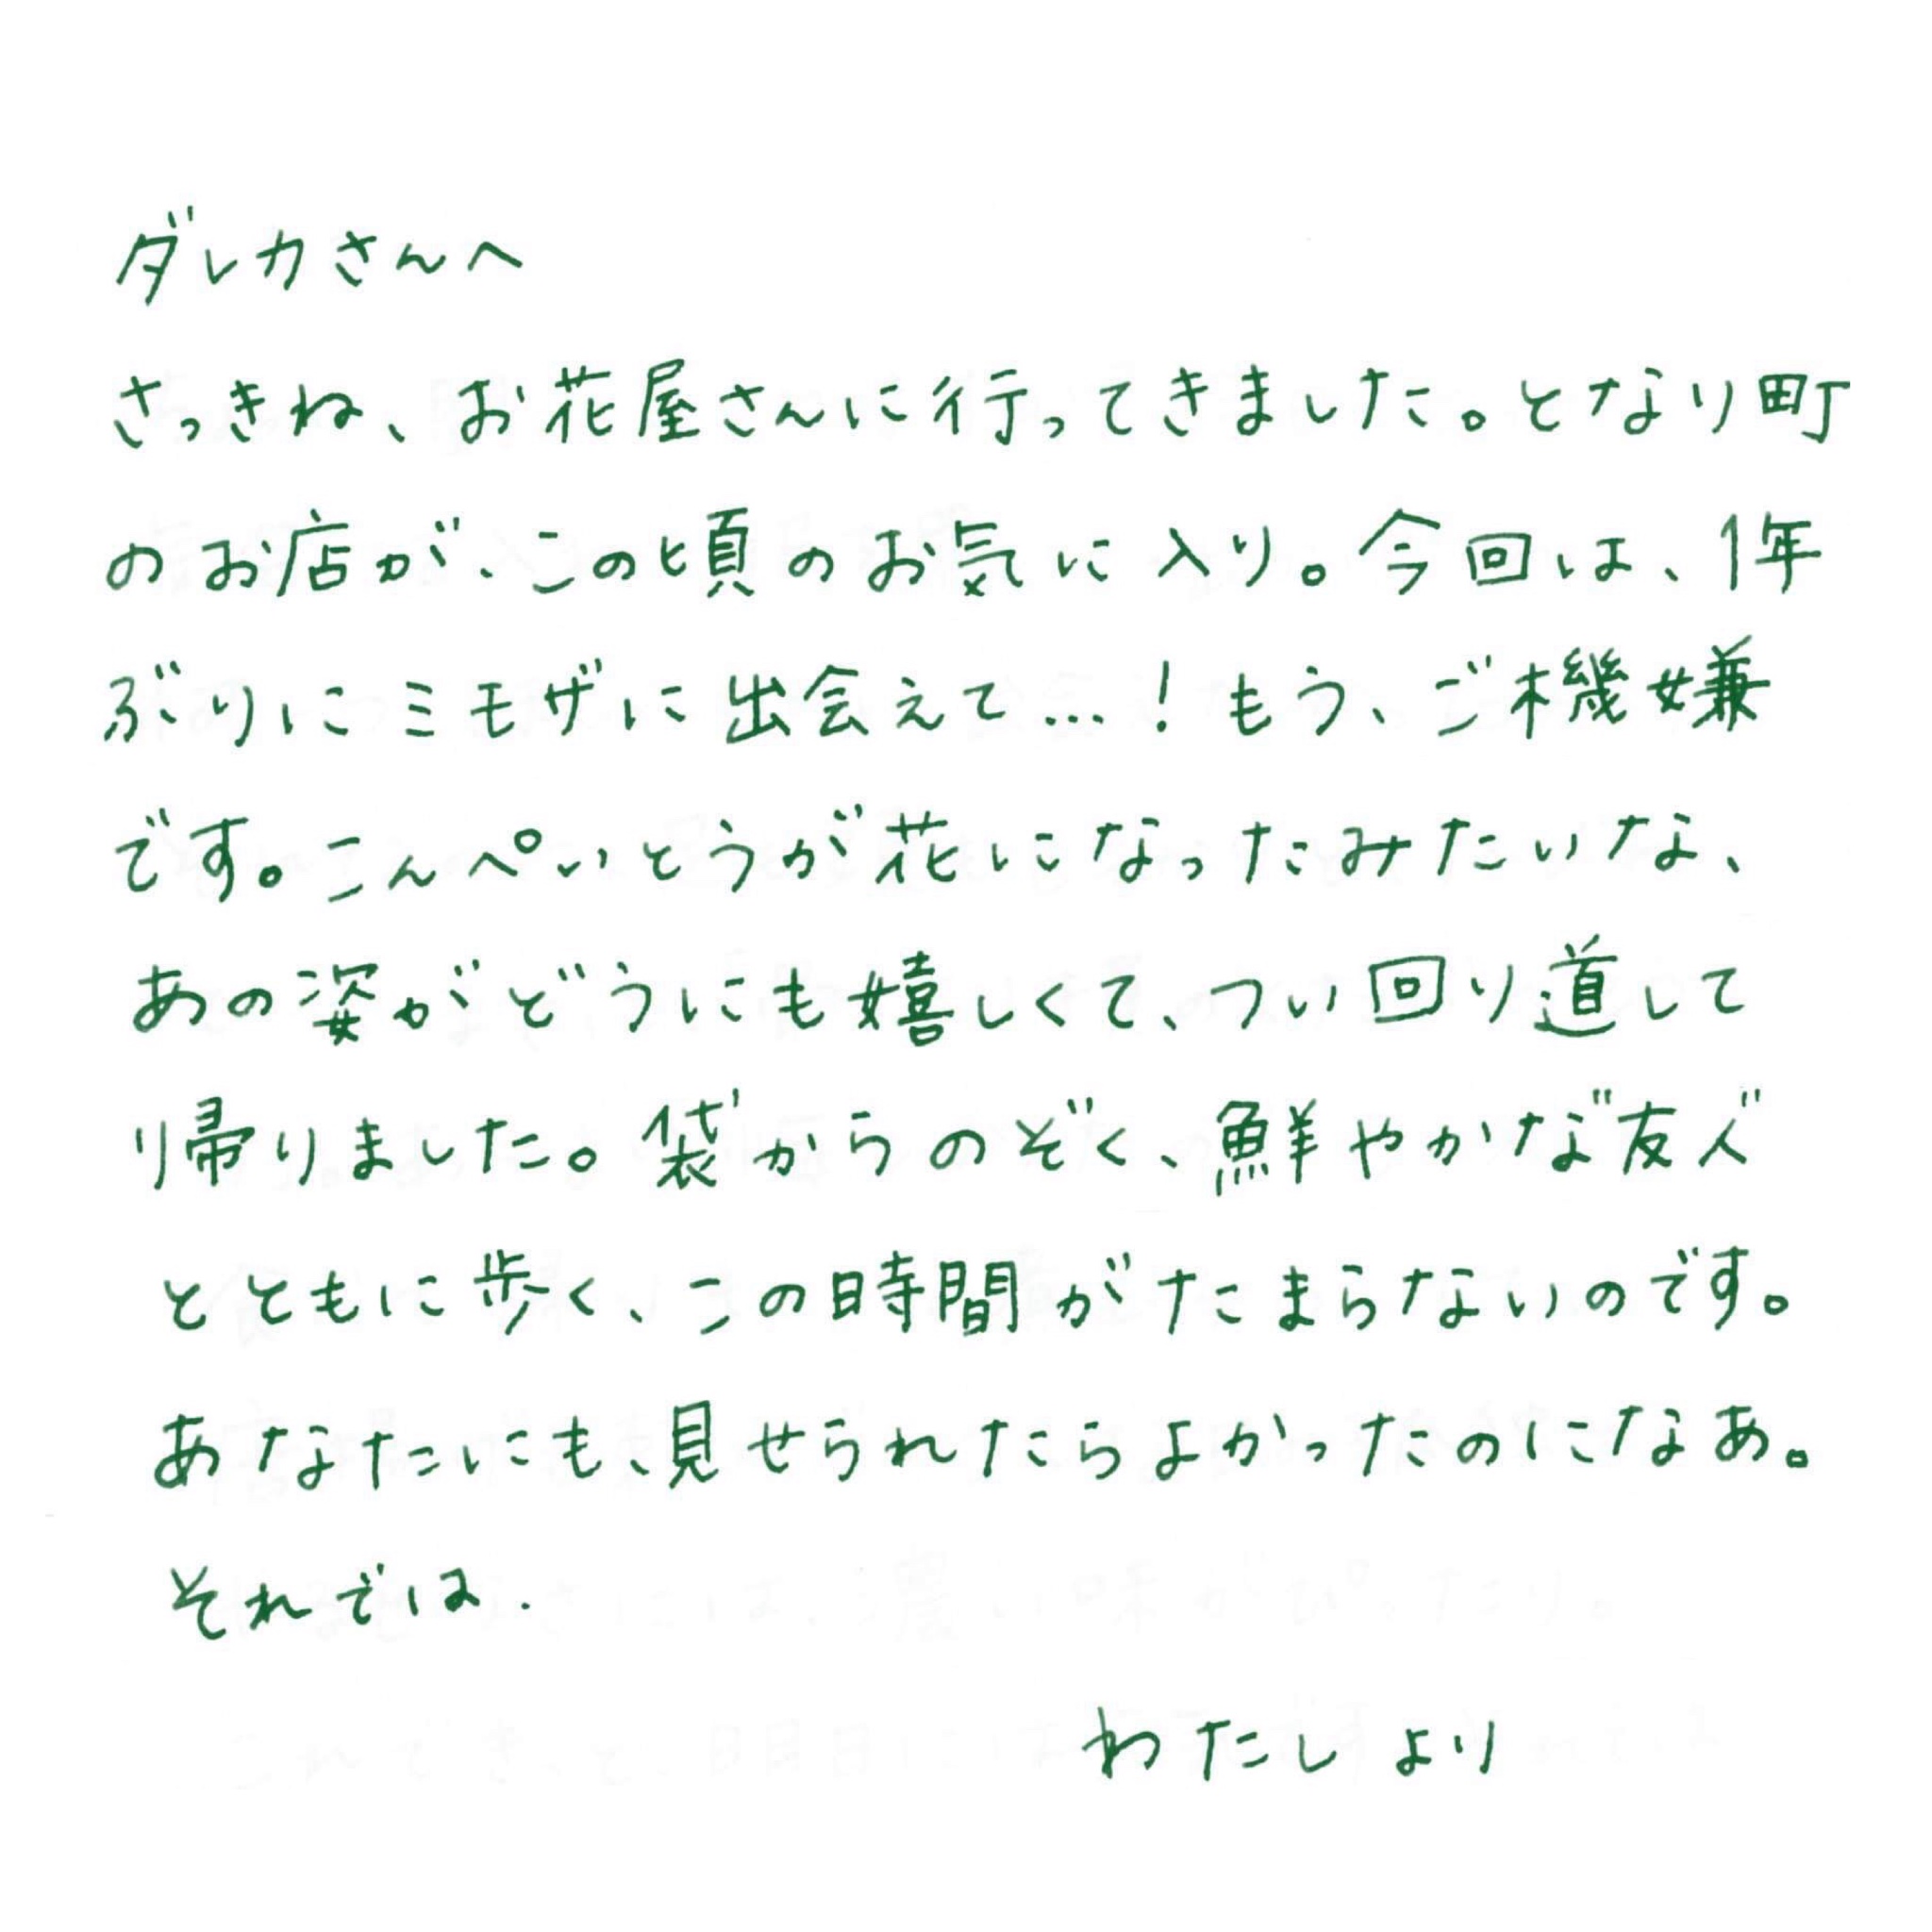 ダレカさんへ
さっきね、お花屋さんに行ってきました。となり町
のお店が、この頃のお気に入り。今回は、1年
ぶりにミモザに出会えて…！もう、ご機嫌
です。こんぺいとうが花になったみたいな、
あの姿がどうにも嬉しくて、つい回り道して
帰りました。袋からのぞく、鮮やかな"友人"
とともに歩く、この時間がたまらないのです。
あなたにも、見せられたらよかったのになあ。
それでは.
わたしより